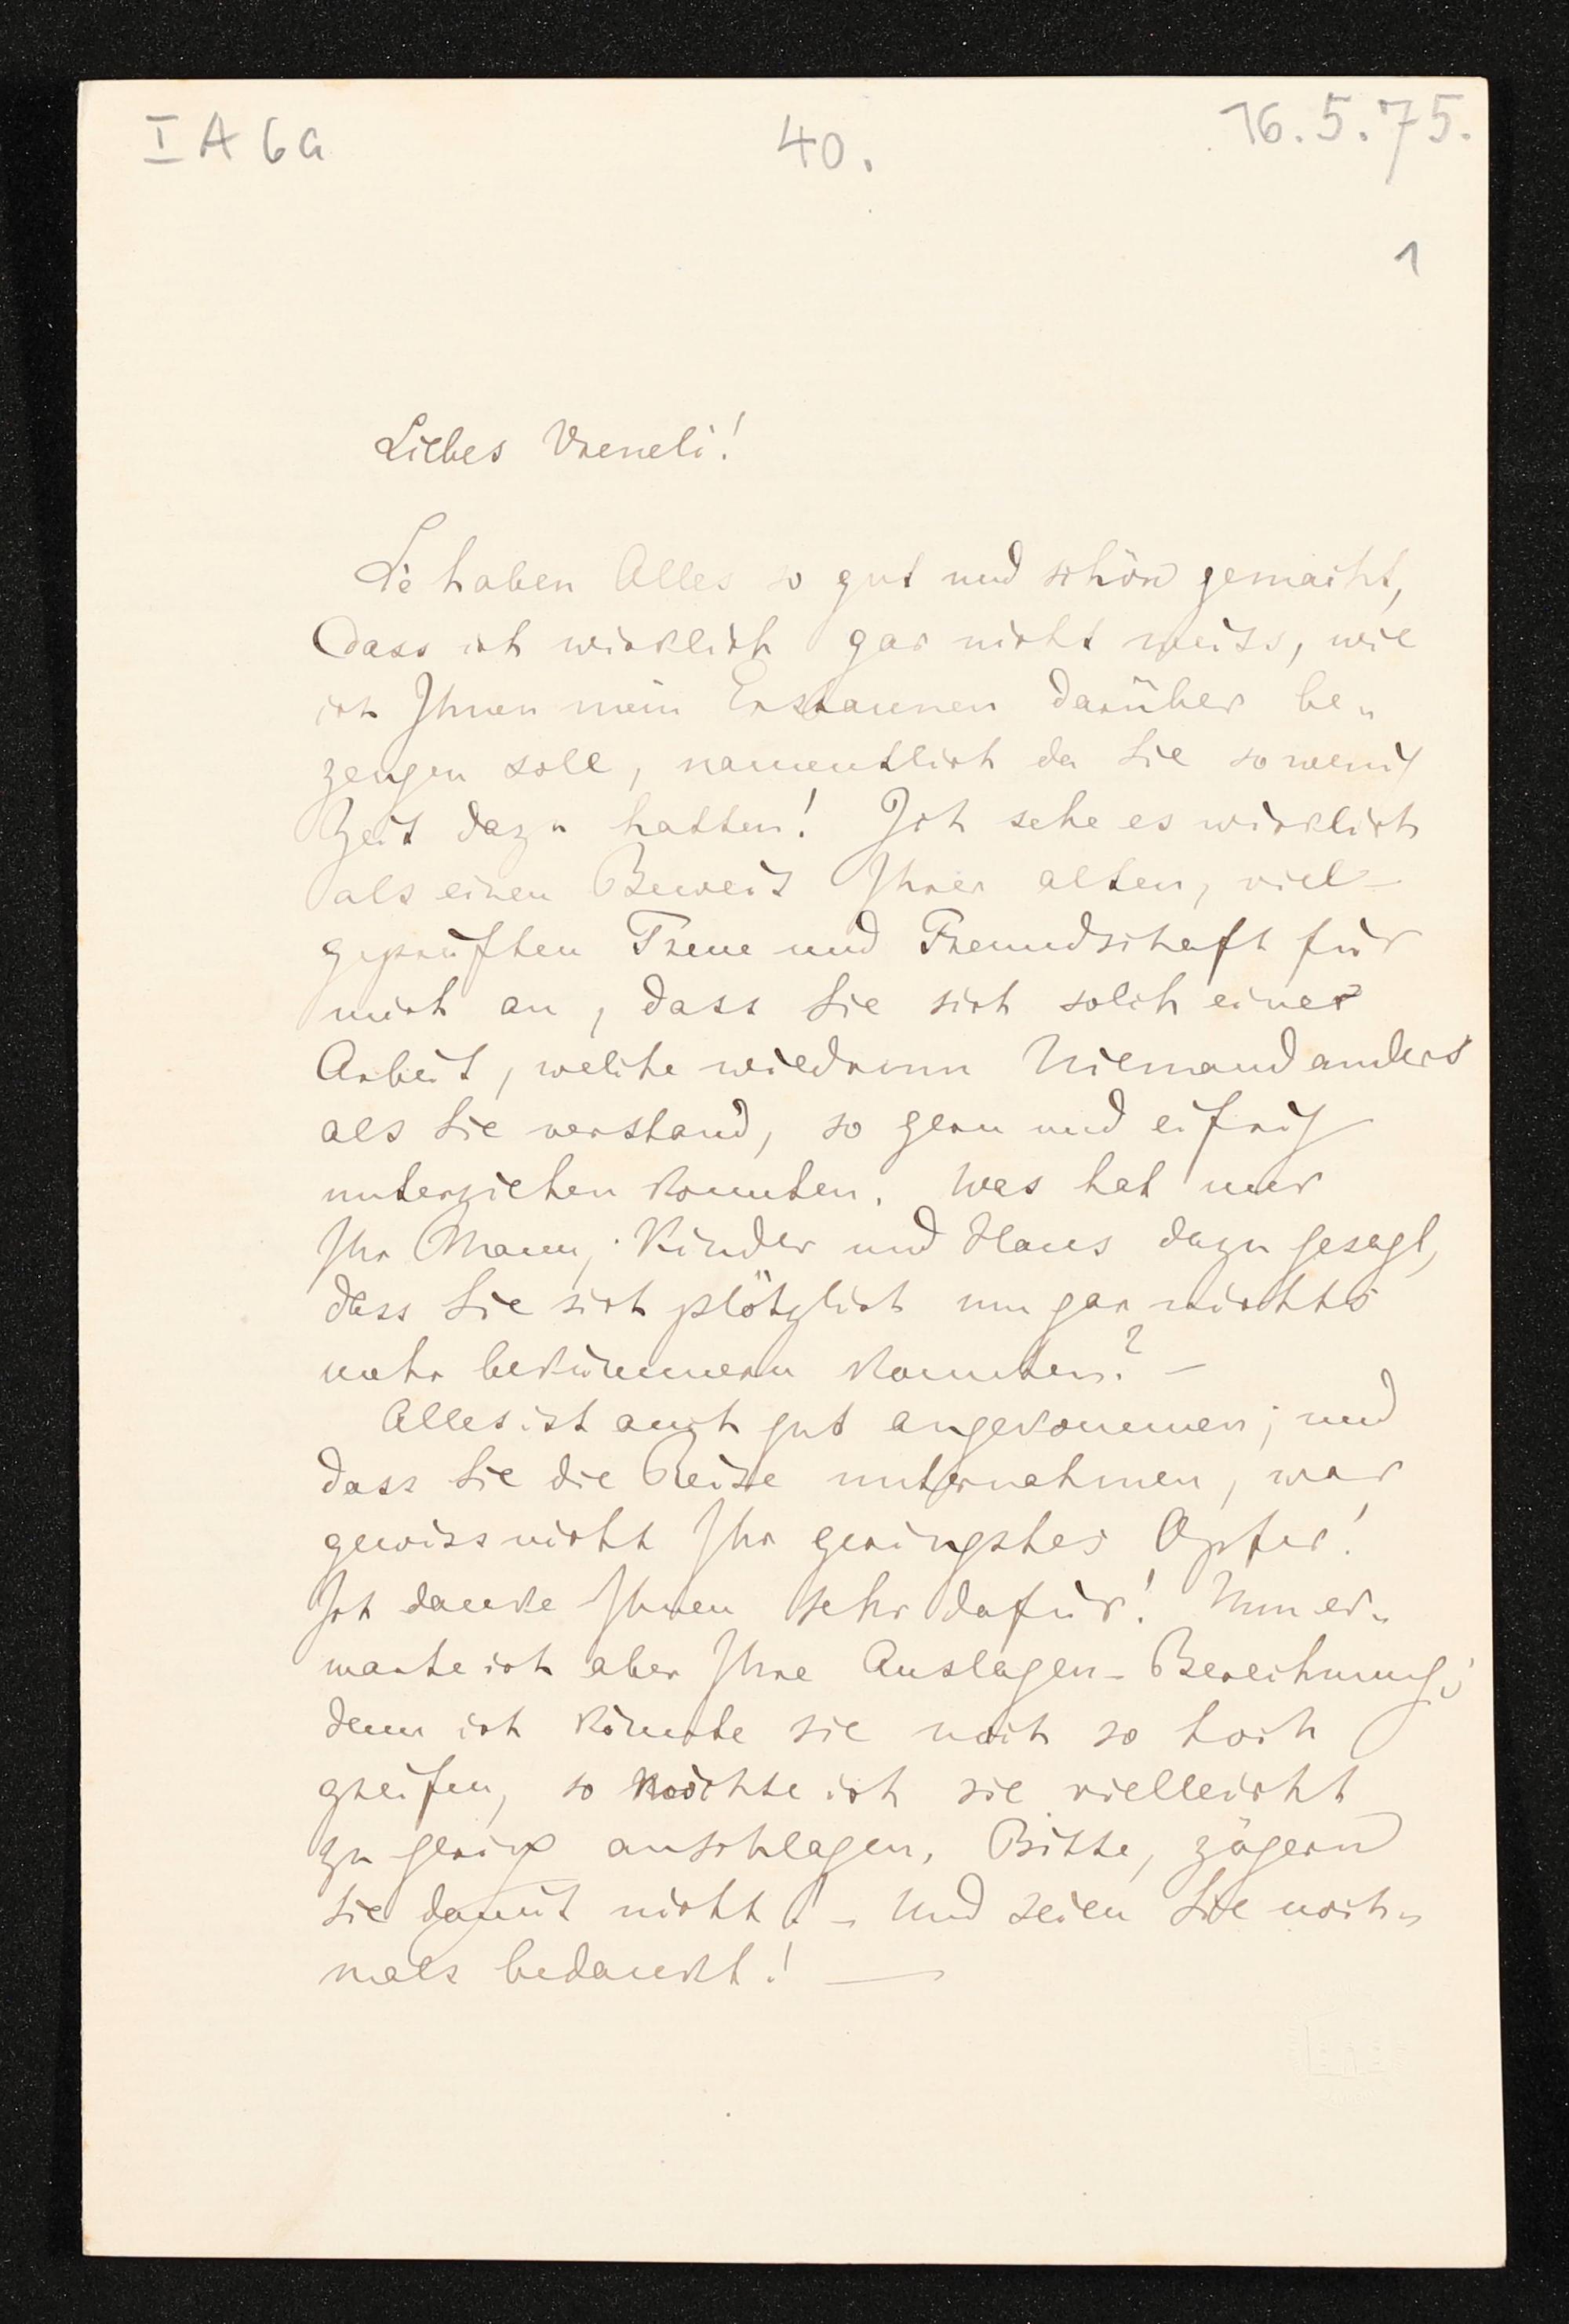 I A 6a
40.
16.5.75.
1
Liebes Vreneli!
Sie haben Alles so gut und schön gemacht,
dass ich wirklich gar nicht weiss, wie
ich Ihnen mein Erstaunen darüber be-
zeugen soll, namentlich da Sie so wenig
Zeit dazu hatten! Ich sehe es wirklich
als einen Beweis Ihrer alten, viel-
geprüften Treue und Freundschaft für
mich an, dass Sie sich solch einer
Arbeit, welche wiedrum Niemand anders
als Sie verstand, so gern und eifrig
unterziehen konnten. Was hat nur
Ihr Mann, Kinder und Haus dazu gesagt,
dass Sie sich plötzlich um gar nichts
mehr bekümmern konnten? –
Alles ist auch gut angekommen; und
dass Sie die Reise unternahmen, war
gewiss nicht Ihr geringstes Opfer!
Ich danke Ihnen sehr dafür! Nun er-
warte ich aber Ihre Auslagen-Berechnung;
denn ich könnte sie noch so hoch
greifen, so möchte ich sie vielleicht
zu gering anschlagen. Bitte, zögern
Sie damit nicht! – Und seien Sie noch-
mals bedankt! —